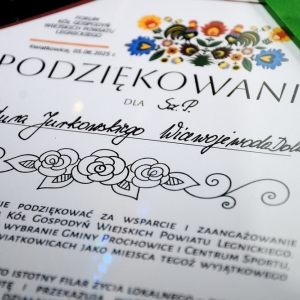 FORUM
KÓŁ GOSPODYŃ
WIEJSKICH POWIATU
LEGNICKIEGO
Kwiatkowice, 03.06.2023 r.
PODZIĘKOWANI
DLA Sz.P.
Jurkowskiego Wicewojewoda Dol
IE PODZIĘKOWAĆ ZA WSPARCIE I ZAANGAŻOWANIE
KÓŁ GOSPODYŃ WIEJSKICH POWIATU LEGNICKIEGO.
WYBRANIE GMINY PROCHOWICE I CENTRUM SPORTU,
WIATKOWICACH JAKO MIEJSCA TEGOŻ WYJĄTKOWEGO
TO ISTOTNY FILAR ŻYCIA LOKALNEGO
TĘ I PRZEKAZUJĄ